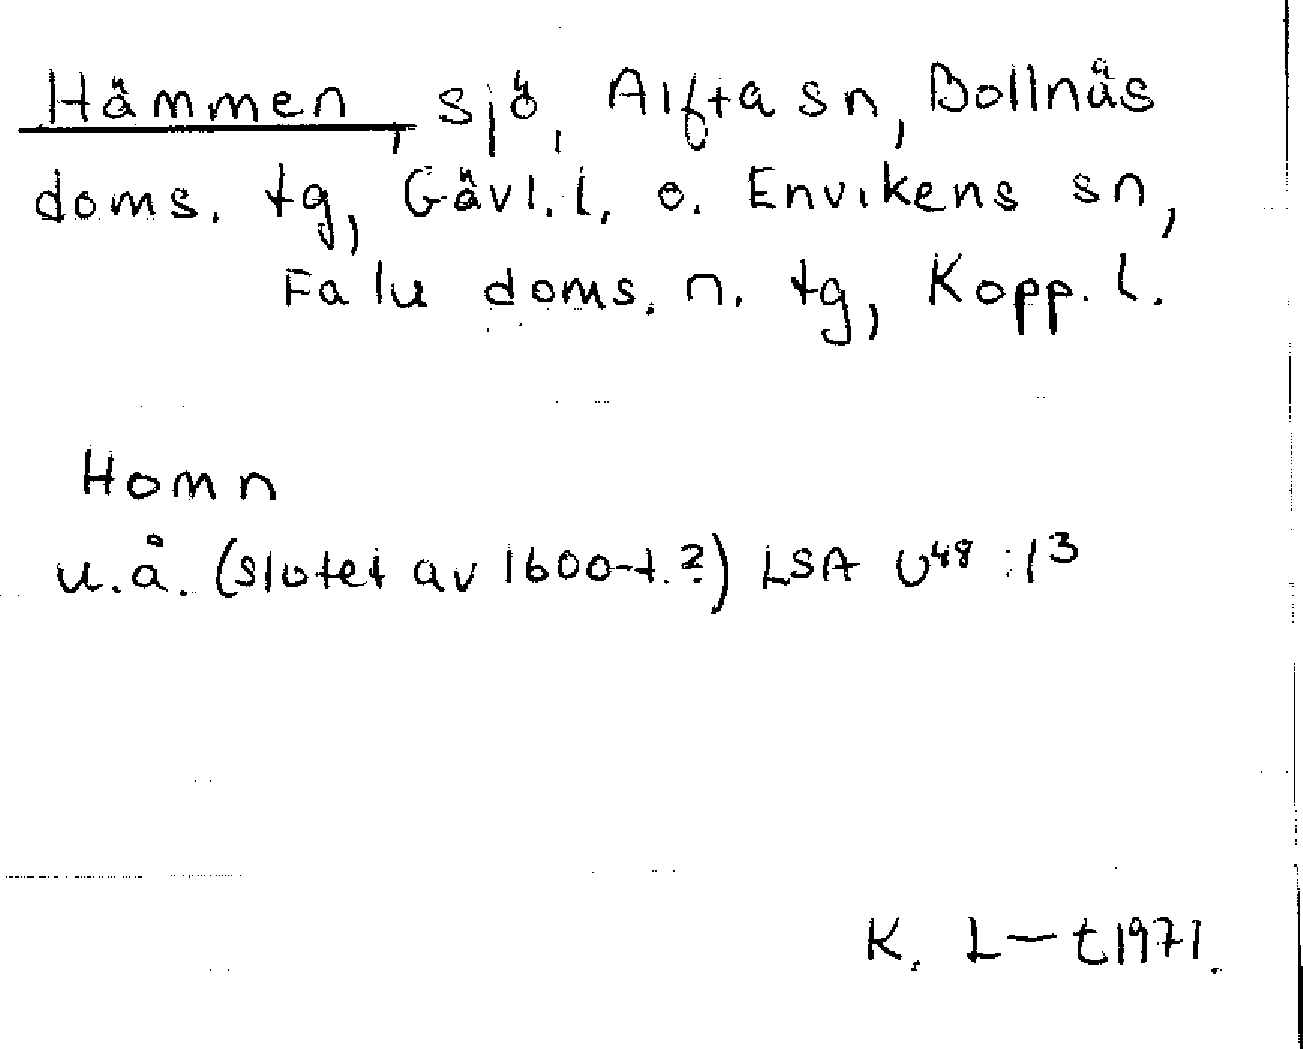 Hämmen, sjö, Alfta sn, Bollnäs
doms. tg, Gävl. l. o. Envikens sn,
Falu doms. n. tg, Kopp. l.
Homn
u.å. (slutet av 1600-t.?) LSA U48:13
K. L—t 1971.